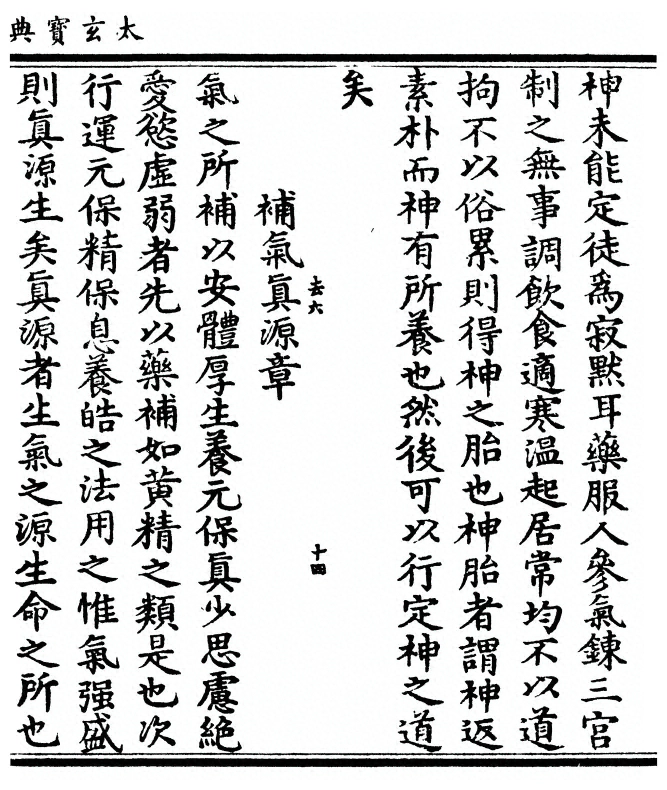 太玄寶典
神未能定徒爲寂默耳藥服人參氣鍊三宮
制之無事調飲食適寒温起居常均不以道
拘不以俗累則得神之胎也神胎者謂神返
素朴而神有所養也然後可以行定神之道
矣
去六
十四
補氣眞源章
氣之所補以安體厚生養元保眞少思慮絶
愛慾虛弱者先以藥補如黄精之類是也次
行運元保精保息養皓之法用之惟氣强盛
則眞源生矣眞源者生氣之源生命之所也